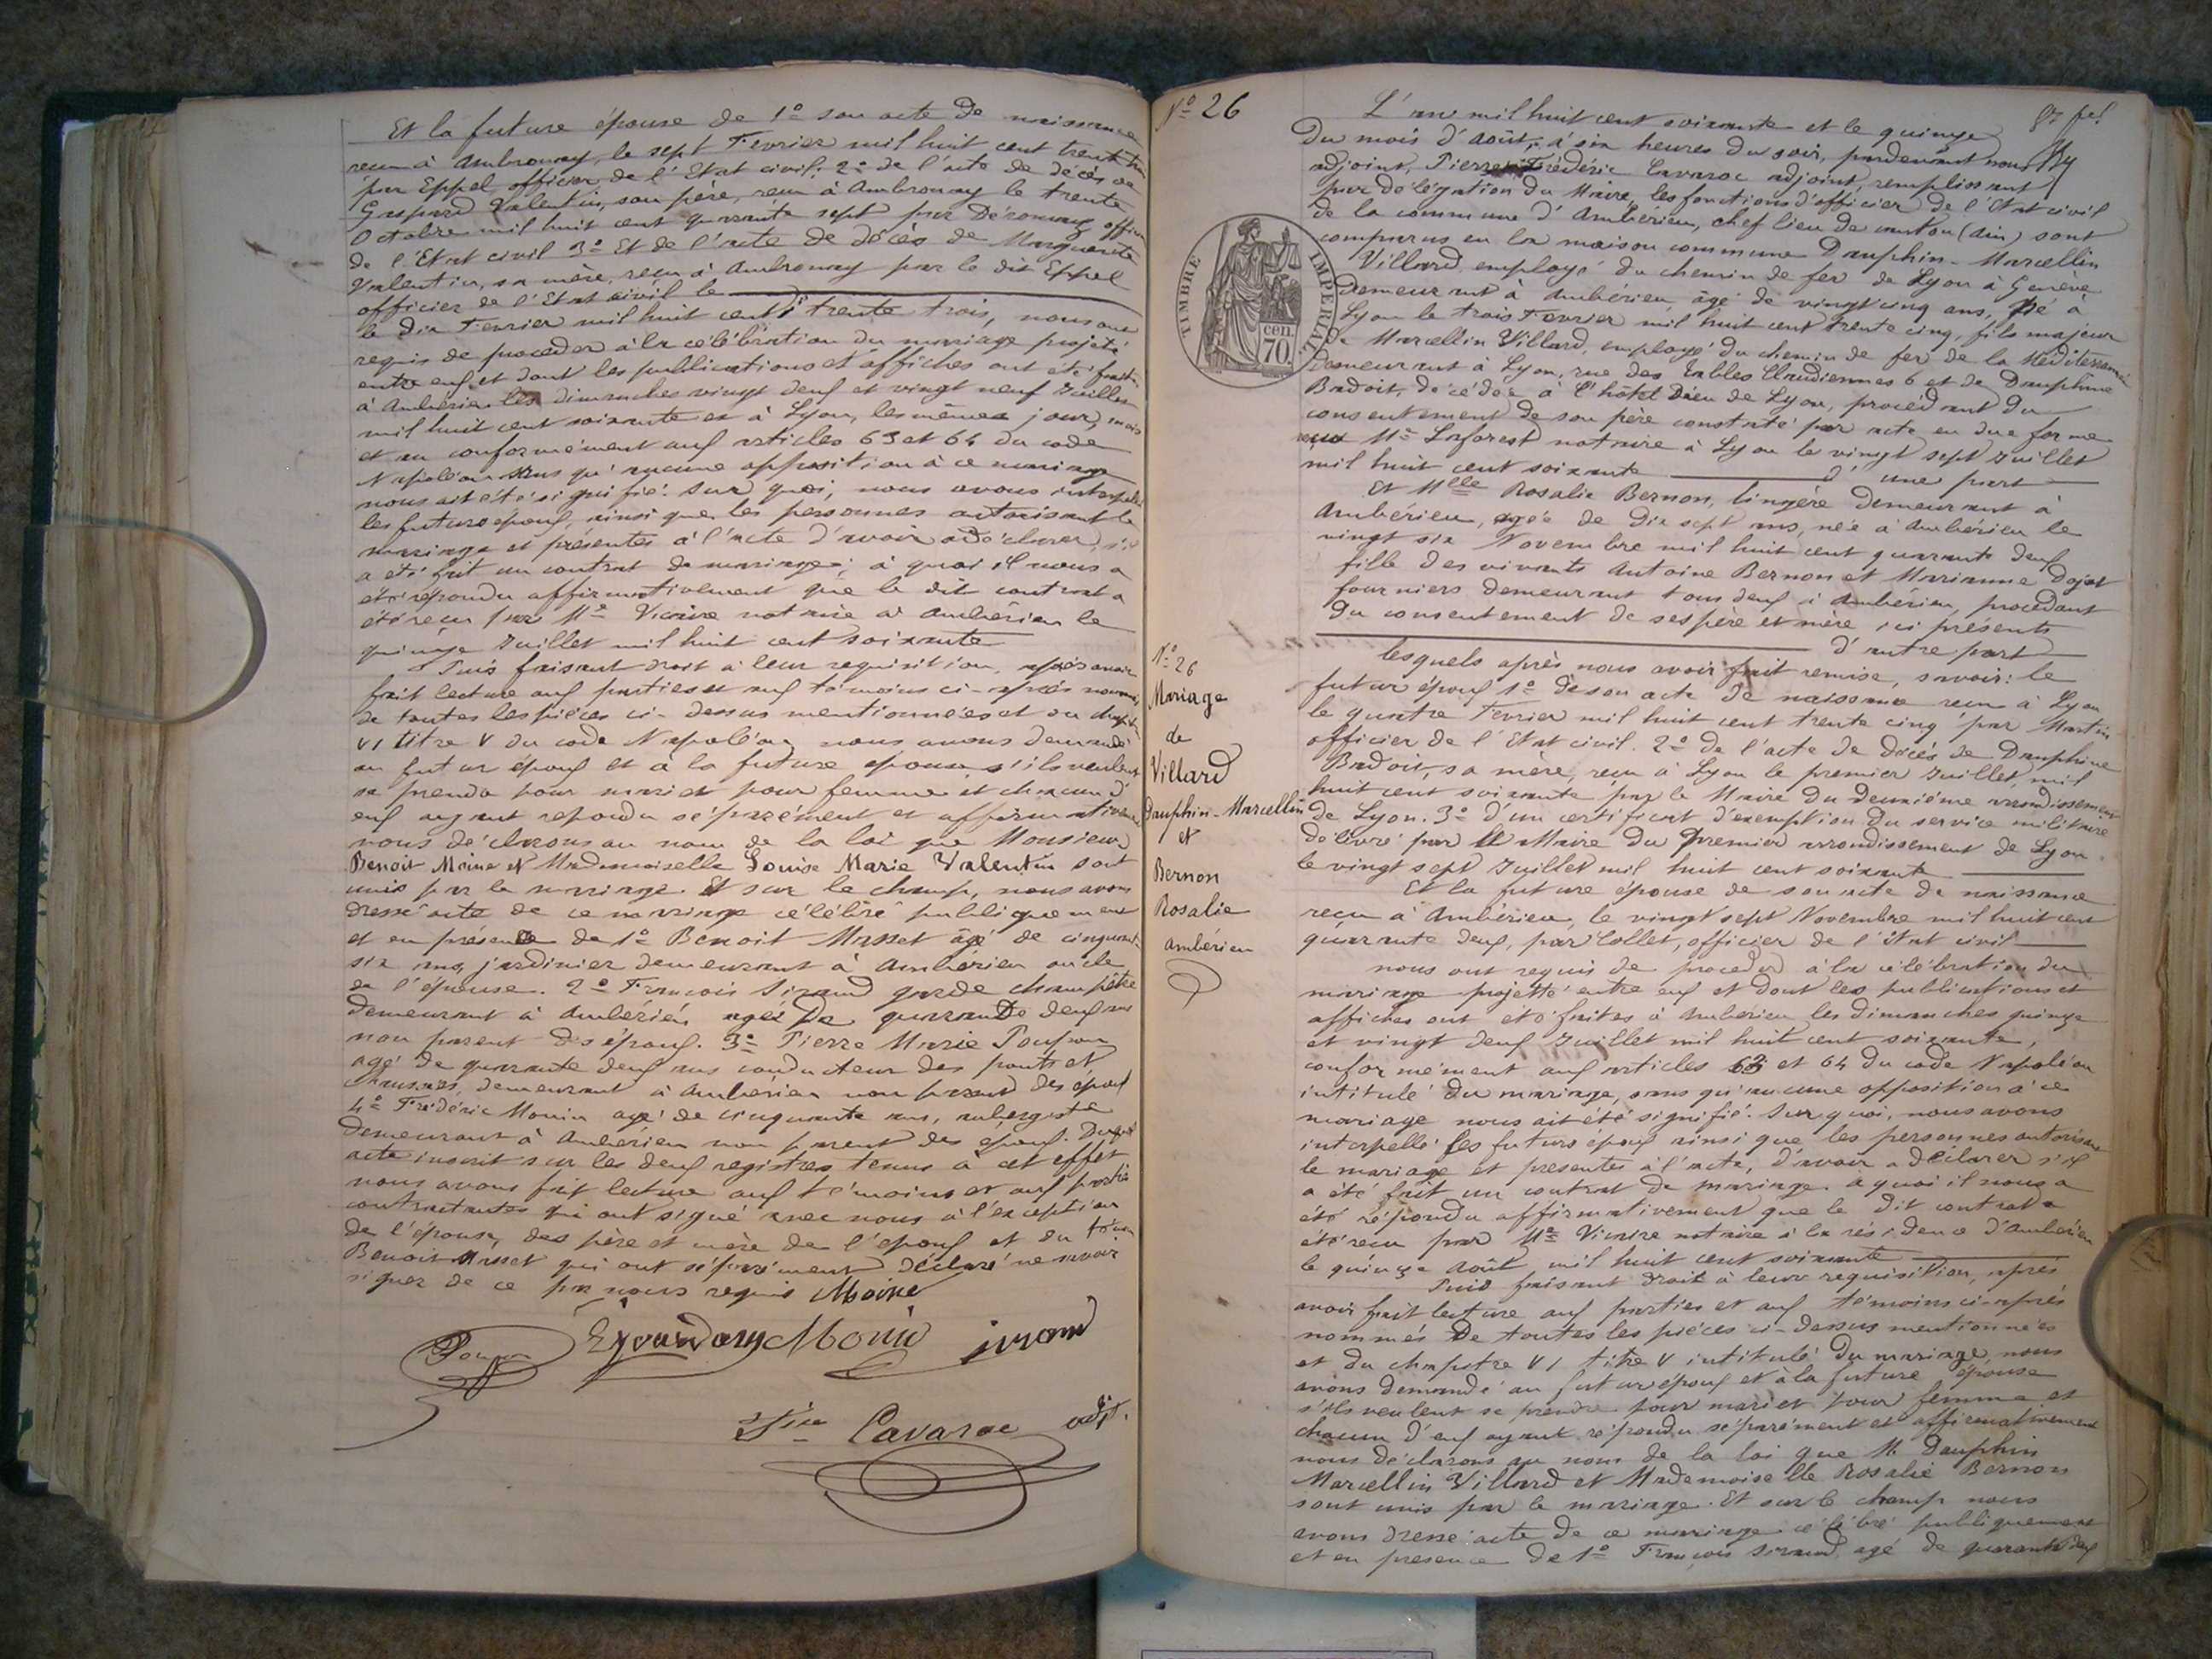 Et la future épouse de 1° son acte de naissance
reçu à Ambronay, le sept Fevrier mil huit cent trente trois
par Eppel officier de l'Etat civil; 2° de l'acte de décès de
Gaspard Valentin, son père, reçu à Ambronay le trente
Octobre mil huit cent quarante sept par officier
de l'Etat civil 3° Et de l'acte de décès de Marguerite
Valentin, sa mère, reçu à Ambronay par le dit Eppel
officier de l'Etat civil le
le dix Fevrier mil huit cent trente trois, nous ont
requis de procéder à la célébration du mariage projeté
entre eux et dont les publications et affiches ont été faites
à Ambérieu les dimanches vingt deux et vingt neuf Juillet
mil huit cent soixante et à Lyon, les mêmes jours, mois
et an conformément aux articles 63 et 64 du code
Napoléon sans qu'aucune opposition à ce mariage
nous ait été signifié. Sur quoi, nous avons interpellé
les futurs époux, ainsi que les personnes autorisant le
mariage et présentes à l'acte d'avoir à déclarer, s'il
a été fait un contrat de mariage; à quoi il nous a
été répondu affirmativement que le dit contrat a
été reçu par Me Vicaire notaire à Ambérieu le
quinze Juillet mil huit cent soixante
Puis faisant droit à leur requisition, après avoir
fait lecture aux parties et aux témoins ci-après nommés
de toutes les pièces ci-dessus mentionnées et du chapitre
VI titre V du code Napoléon nous avons demandé
au futur époux et à la future épouse s'ils veulent
se prendre pour mari et pour femme et chacun d'
eux ayant repondu séparément et affirmativement
nous déclarons au nom de la loi que Monsieur
Benoit Moine et Mademoiselle Louise Marie Valentin sont
unis par le mariage. Et sur le champ, nous avons
dressé acte de ce mariage célébré publiquement
et en présence de 1° Benoit Masset âgé de cinquante
six ans, jardinier demeurant à Ambérieu oncle
de l'épouse. 2° François Siraud garde champêtre
demeurant à Ambérieu agé de quarante deux ans
non parent des époux. 3° Pierre Marie Poupon
agé de quarante deux ans conducteur des ponts et
chaussées, demeurant à Ambérieu non parent des époux
4° Frédéric Monin agé de cinquante ans, aubergiste
demeurant à Ambérieu non parent des époux. Duquel
acte inscrit sur les deux registres tenus à cet effet
nous avons fait lecture aux témoins et aux parties
contractantes qui ont signé avec nous à l'exception
de l'épouse, des père et mère de l'époux et du témoin
Benoit Masset qui ont séparément déclaré ne savoir
signer de ce par nous requis Moine
Poupon Monin
Fric Cavaroc adjt.
N° 26
L'an mil huit cent soixante et le quinze
du mois d'août, à six heures du soir, pardevant nous
adjoint, Pierre Frédéric Cavaroc adjoint, remplissant
par délégation du Maire, les fonctions d'officier de l'Etat civil
de la commune d'Ambérieu, chef lieu de canton (Ain) sont
comparus en la maison commune Dauphin-Marcellin
Villard, employé du chemin de fer de Lyon à Genève
demeurant à Ambérieu âgé de vingt cinq ans, né à
Lyon le trois Fevrier mil huit cent trente cinq, fils majeur
de Marcellin Villard, employé du chemin de fer de la Méditerranée
demeurant à Lyon, rue des tables Claudiennes 6 et de Dauphine
Badoit, décédée à l'hôtel Dieu de Lyon, procédant du
consentement de son père constaté par acte en due forme
reçu Me Laforest notaire à Lyon le vingt sept Juillet
mil huit cent soixante d'une part
Et Mlle Rosalie Bernon, lingère demeurant à
Ambérieu, agée de dix sept ans, née à Ambérieu le
vingt six Novembre mil huit cent quarante deux
fille des vivants Antoine Bernon et Marianne Dojat
fourniers demeurant tous deux à Ambérieu, procédant
du consentement de ses père et mère ici présents
d'autre part
N° 26
Mariage
de
Villard
Dauphin-Marcellin
et
Bernon
Rosalie
Ambérieu
lesquels après nous avoir fait remise, savoir: le
futur époux 1° de son acte de naissance reçu à Lyon
le quatre Fevrier mil huit cent trente cinq par Martin
officier de l'Etat civil. 2° de l'acte de décès de Dauphine
Badoit, sa mère, reçu à Lyon le premier Juillet, mil
huit cent soixante par le Maire du deuxième arrondissement
de Lyon. 3° d'un certificat d'exemption du service militaire
délivré par le Maire du premier arrondissement de Lyon
le vingt sept Juillet mil huit cent soixante
Et la future épouse de son acte de naissance
reçu à Ambérieu, le vingt sept Novembre mil huit cent
quarante deux, par Collet, officier de l'état civil
nous ont requis de procéder à la célébration du
mariage projetté entre eux et dont les publications et
affiches ont été faites à Ambérieu les dimanches quinze
et vingt deux Juillet mil huit cent soixante,
conformément aux articles 63 et 64 du code Napoléon
intitulé du mariage, sans qu'aucune opposition à ce
mariage nous ait été signifié. Sur quoi, nous avons
interpellé les futurs époux ainsi que les personnes autorisant
le mariage et présentes à l'acte, d'avoir a déclarer s'il
a été fait un contrat de mariage. a quoi il nous a
été répondu affirmativement que le dit contrat a
été reçu par Me Vicaire notaire à la résidence d'Ambérieu
le quinze août mil huit cent soixante
Puis faisant droit à leur requisition, après
avoir fait lecture aux parties et aux témoins ci-après
nommés de toutes les pièces ci-dessus mentionnées
et du chapitre VI titre V intitulé du mariage, nous
avons demandé au futur époux et à la future épouse
s'ils veulent se prendre pour mari et pour femme et
chacun d'eux ayant répondu séparément et affirmativement
nous déclarons au nom de la loi que M. Dauphin
Marcellin Villard et Mademoiselle Rosalie Bernon
sont unis par le mariage. Et sur le champ nous
avons dressé acte de ce mariage célébré publiquement
et en présence de 1° François Siraud, agé de quarante deux
TIMBRE IMPERIAL
70 cen.